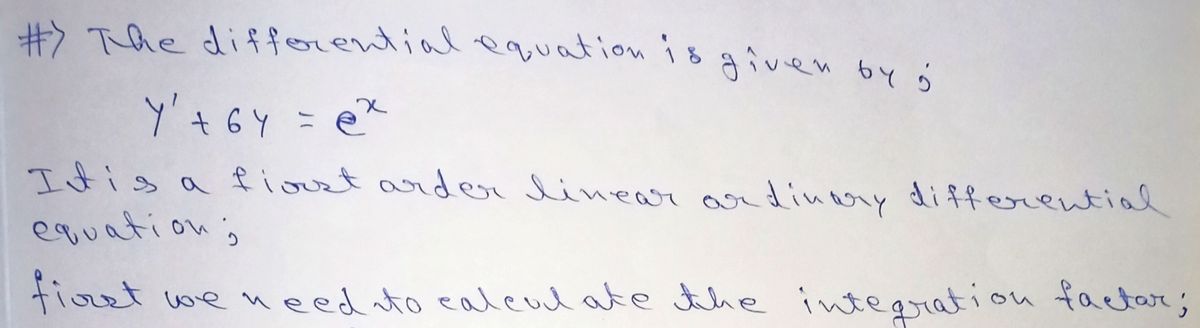 #> The differential equation is given by ;
y' + 6y = eˣ
It is a first order linear ordinary differential
equation ;
first we need to calculate the integration factor ;